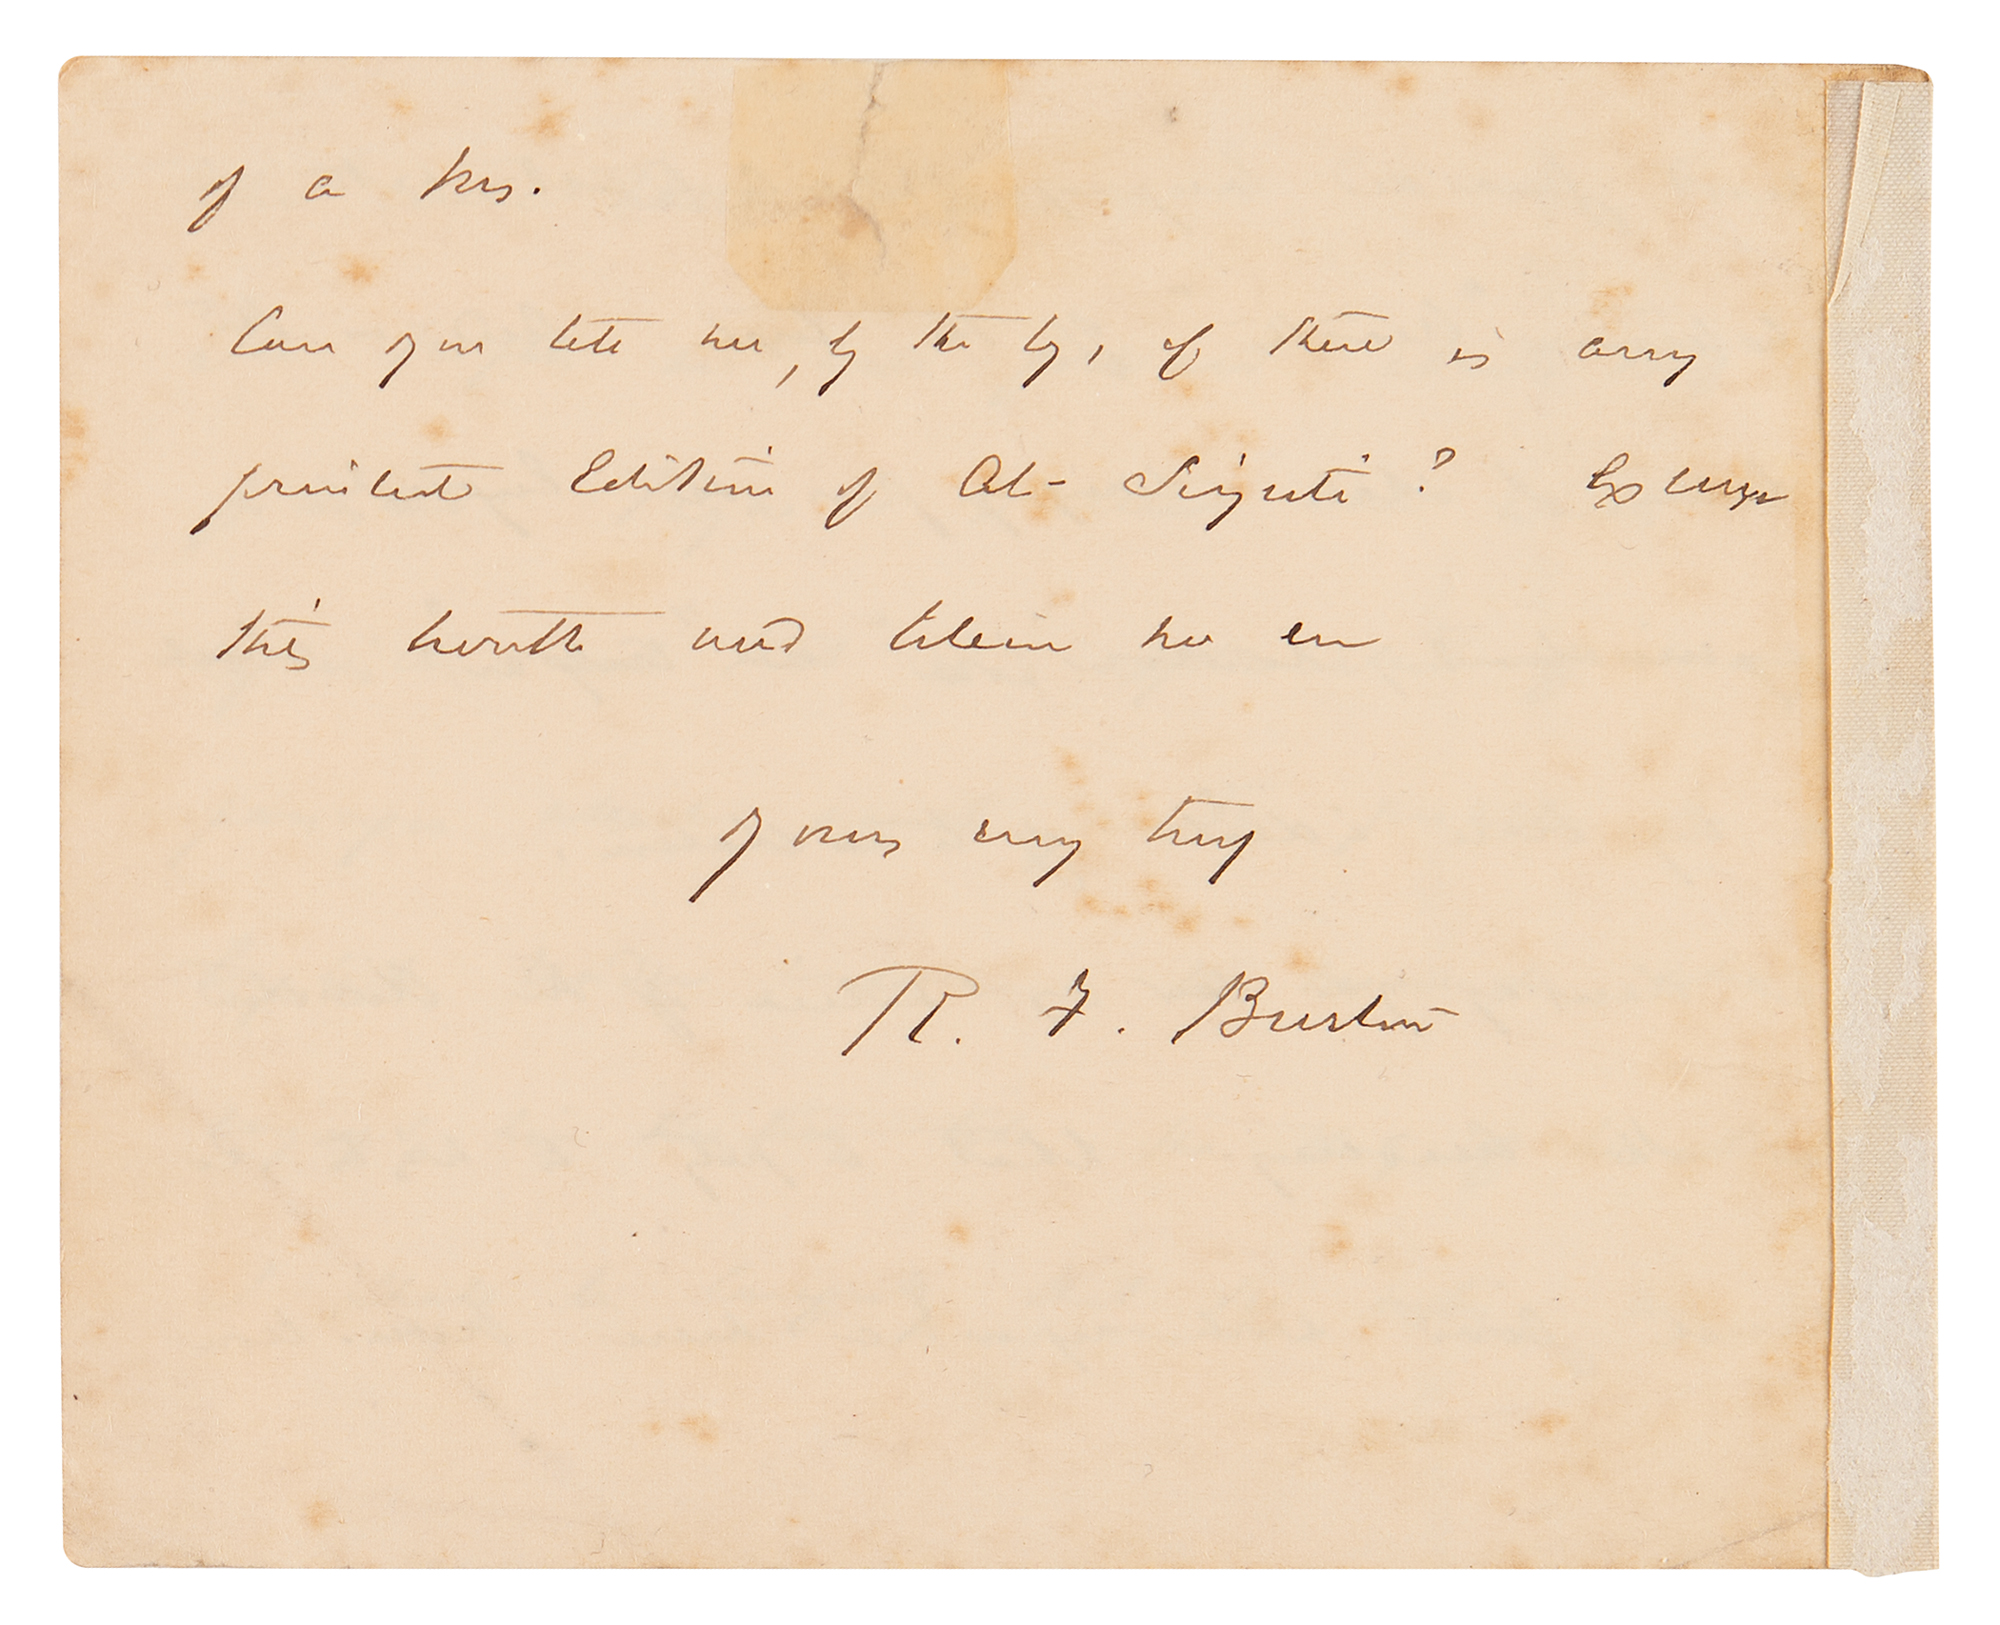 of a Ms.
Can you tell me, by the by, if there is any
printed Edition of Al-Siyuti? Excuse
this trouble and believe me
yours very truly
R. F. Burton